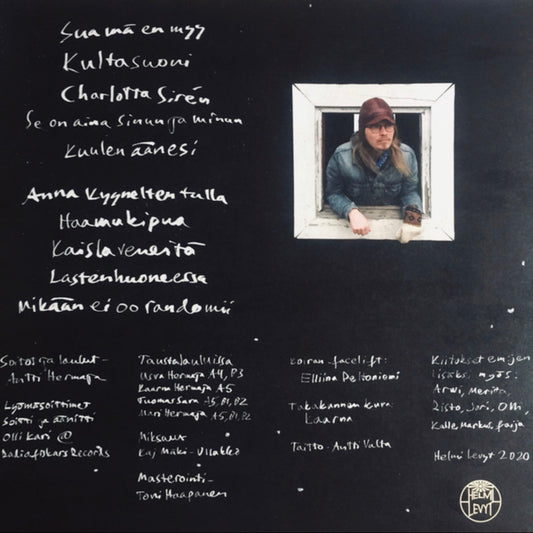 Sua mä en myy
Kultasuoni
Charlotta Sirén
Se on aina sinun ja minun
Kuulen äänesi
Anna Kyynelten tulla
Haamukipua
Kaislaveneitä
Lastenhuoneessa
Mikään ei oo randomii
Soitot ja laulut -
Antti Hermaja
Lyömäsoittimet
Soitti ja äänitti
Olli Kari @
Daliaf0kars Records
Taustalauluissa
Usva Hermaja A4, B3
Kaarna Hermaja A5
Tuomar Sara A5, B1, B2
Mari Hermaja A5, B1, B2
Miksaus
Kaj Mäki-Ullakko
Masterointi-
Toni Haapanen
Koiran facelift:
Elliina Peltoniemi
Takakannen kuva:
Laarna
Taitto - Antti Valta
Kiitokset emojen
lisäksi myös:
Arwi, Merita,
Risto, Jari, Olli,
Kalle, Markus, faija
Helmi Levyt 2020
HELMI
LEVYT